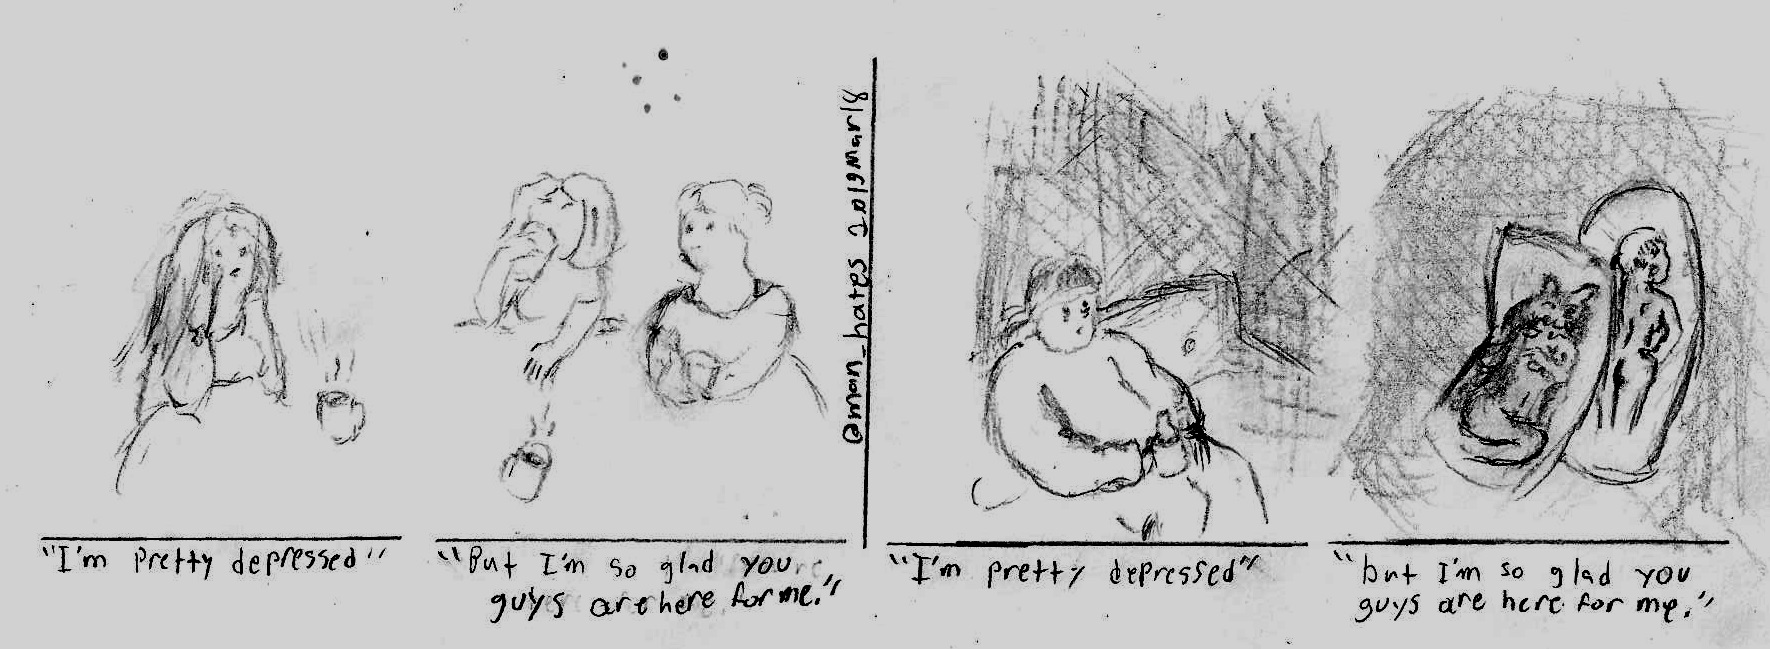 "I'm Pretty depressed"
"But I'm so glad you
guys are here for me."
@man_hates 2019mar18
"I'm pretty depressed"
"but I'm so glad you
guys are here for me."